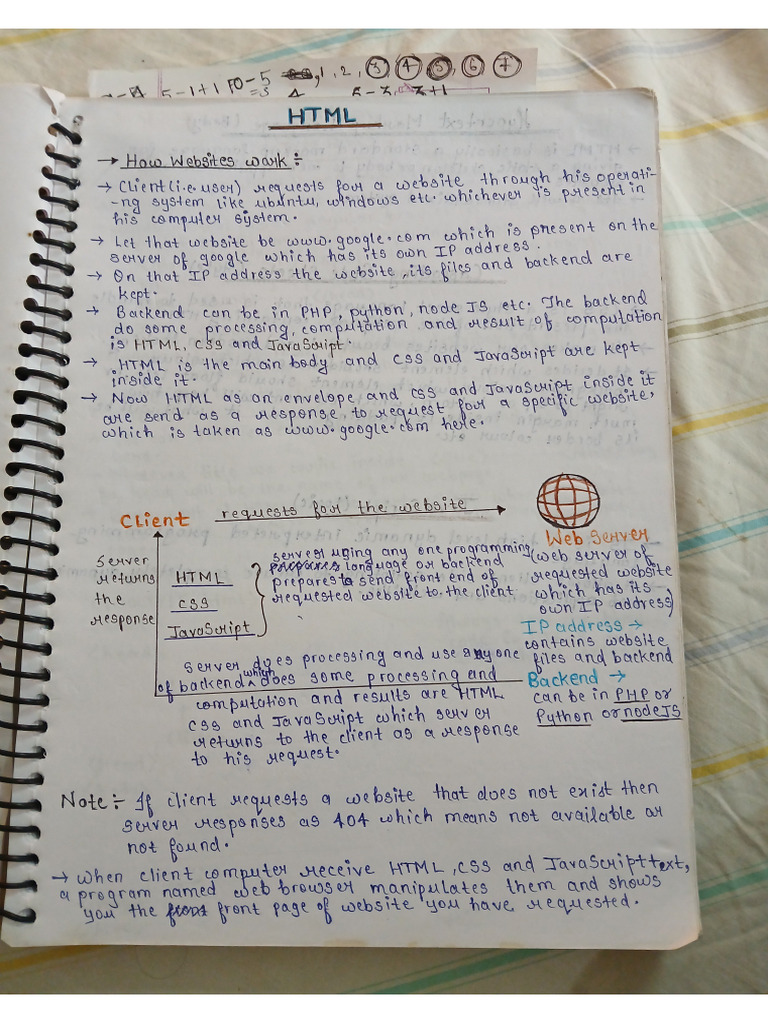 5-1+1 10-5 , 1, 2, 3 4 5 6 7
=3 4 5-3, 3+1
HTML
→ How Websites work :-
→ Client (i.e user) requests for a website through his operati-
-ng system like ubuntu, windows etc. whichever is present in
his computer system.
→ Let that website be www.google.com which is present on the
server of google which has its own IP address.
→ On that IP address the website, its files and backend are
kept.
→ Backend can be in PHP, python, node JS etc. The backend
do some processing, computation and result of computation
is HTML, CSS and JavaScript.
→ HTML is the main body and CSS and JavaScript are kept
inside it.
→ Now HTML as an envelope and CSS and JavaScript inside it
are send as a response to request for a specific website,
which is taken as www.google.com here.
Client requests for the website
Web Server
(web server of
requested website
which has its
own IP address)
Server
returns
the
response
HTML
CSS
JavaScript
server using any one programming
language or backend
prepares to send front end of
requested website to the client
IP address →
contains website
files and backend
Backend →
can be in PHP or
Python or node JS
Server does processing and use any one
of backend which does some processing and
computation and results are HTML
CSS and JavaScript which server
returns to the client as a response
to his request.
Note :- If client requests a website that does not exist then
server responses as 404 which means not available or
not found.
→ When client computer receive HTML, CSS and JavaScript text,
a program named web browser manipulates them and shows
you the front page of website you have requested.